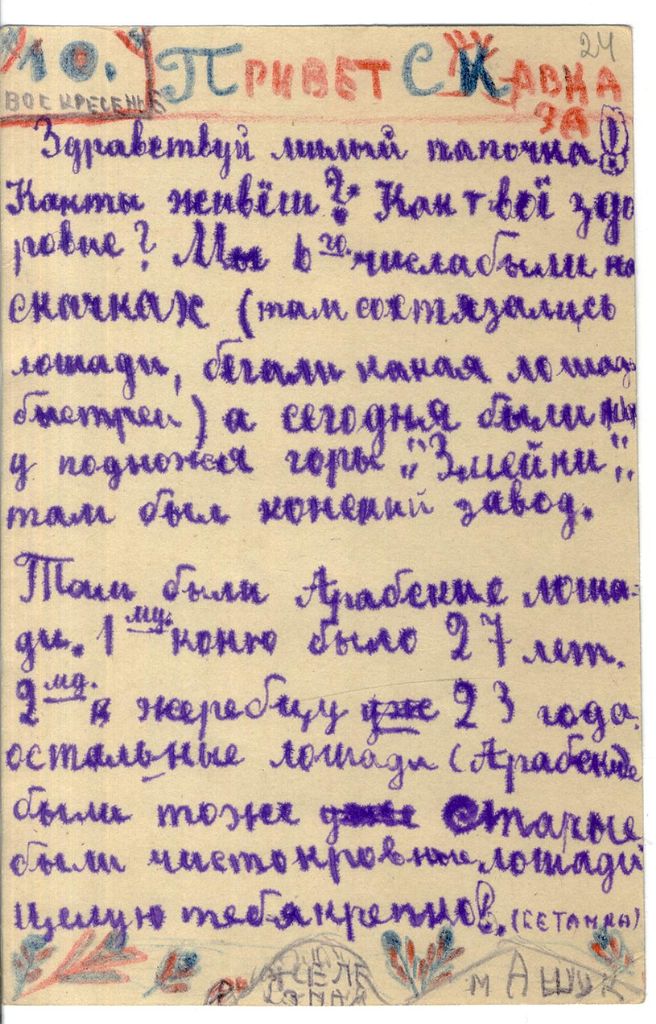 24
10.
ВОСКРЕСЕНЬЕ
ПРИВЕТ С КАВКА
ЗА
Здравствуй милый папочка!
Канты живёш? Как твоі здо
ровие? Мы 6го числа были на
скачках (там состязались
лошади, бегали какая лошадь
быстрей) а сегодня были
у подножея горы "Змейки".
там был конский завод.
Там были Арабские лоша-
ди. 1му. коню было 27 лет.
2му. жеребцу уже 23 года.
остальные лошади (Арабские
были тоже старые
были чистокровные лошади
Целую тебя крепко
ЖЕЛЕ
ЗНАЯ
МАШУК